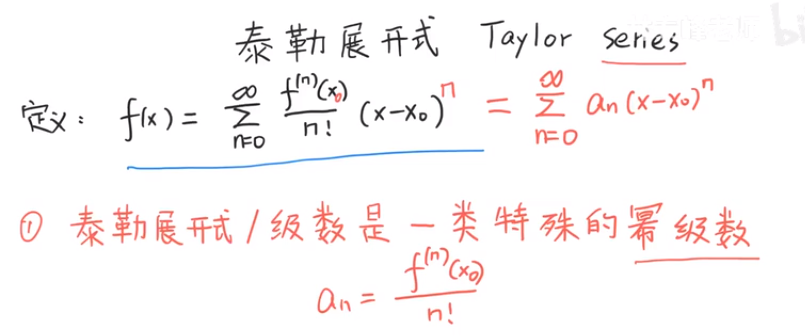 泰勒展开式 Taylor series
定义: f(x) = ∑_{n=0}^{∞} \frac{f^{(n)}(x_0)}{n!} (x-x_0)^n = ∑_{n=0}^{∞} a_n (x-x_0)^n
① 泰勒展开式/级数是一类特殊的幂级数
a_n = \frac{f^{(n)}(x_0)}{n!}